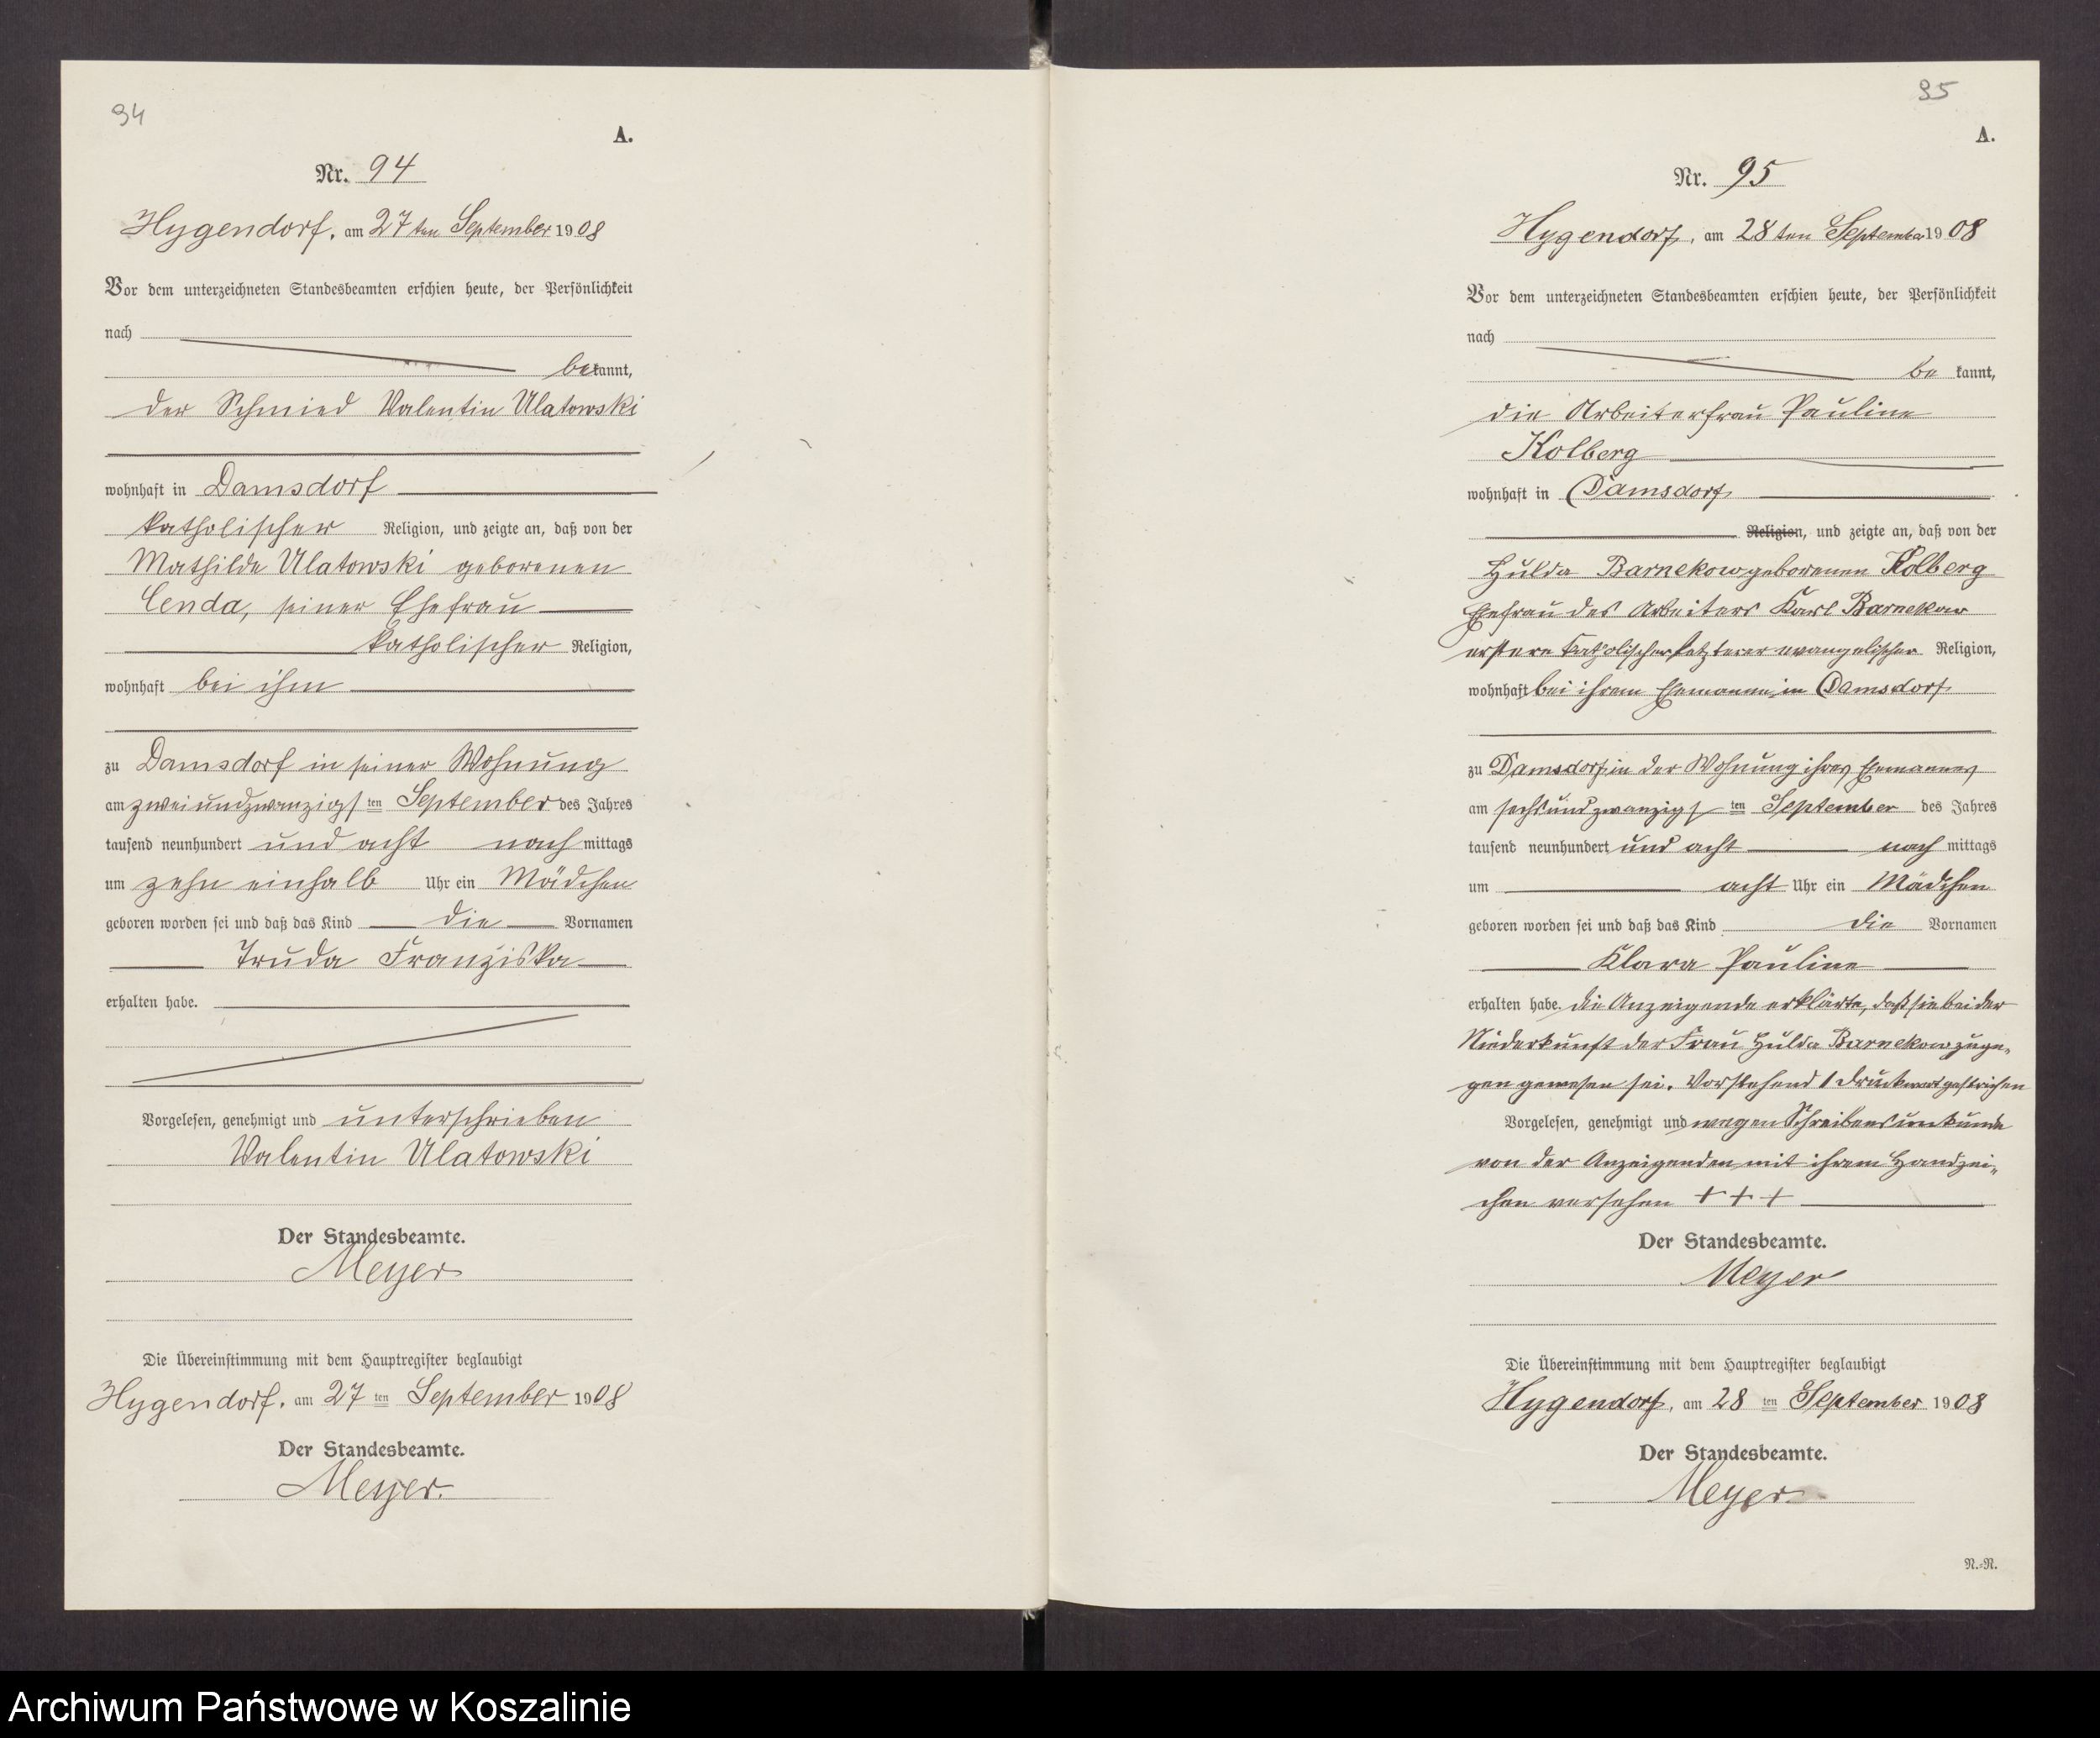 94
A.
Nr. 94
Hygendorf, am 27ten September 1908
Vor dem unterzeichneten Standesbeamten erschien heute, der Persönlichkeit
nach
bekannt,
der Schmied Valentin Ulatowski
wohnhaft in Damsdorf
katholischer Religion, und zeigte an, daß von der
Mathilde Ulatowski geborenen
Cenda, seiner Ehefrau
katholischer Religion,
wohnhaft bei ihm
zu Damsdorf in seiner Wohnung
am zweiundzwanzigsten September des Jahres
tausend neunhundert und acht nachmittags
um zehn einhalb Uhr ein Mädchen
geboren worden sei und daß das Kind die Vornamen
Truda Franziska
erhalten habe.
Vorgelesen, genehmigt und unterschrieben
Valentin Ulatowski
Der Standesbeamte.
Meyer
Die Übereinstimmung mit dem Hauptregister beglaubigt
Hygendorf, am 27ten September 1908
Der Standesbeamte.
Meyer.
95
A.
Nr. 95
Hygendorf, am 28ten September 1908
Vor dem unterzeichneten Standesbeamten erschien heute, der Persönlichkeit
nach
bekannt,
die Arbeiterfrau Pauline
Kolberg
wohnhaft in Damsdorf
Religion, und zeigte an, daß von der
Hulda Barnekow geborenen Kolberg
Ehefrau des Arbeiters Karl Barnekow
erstere katholischer letzterer evangelischer Religion,
wohnhaft bei ihrem Ehemanne in Damsdorf
zu Damsdorf in der Wohnung ihres Ehemannes
am sechsundzwanzigsten September des Jahres
tausend neunhundert und acht nachmittags
um acht Uhr ein Mädchen
geboren worden sei und daß das Kind die Vornamen
Klara Pauline
erhalten habe. die Anzeigende erklärte, daß sie bei der
Niederkunft der Frau Hulda Barnekow zuge-
gen gewesen sei. Vorstehend 1 Druckwort gestrichen
Vorgelesen, genehmigt und wegen Schreibensunkunde
von der Anzeigenden mit ihrem Handzei-
chen versehen + + +
Der Standesbeamte.
Meyer
Die Übereinstimmung mit dem Hauptregister beglaubigt
Hygendorf, am 28ten September 1908
Der Standesbeamte.
Meyer
N.-N.
Archiwum Państwowe w Koszalinie